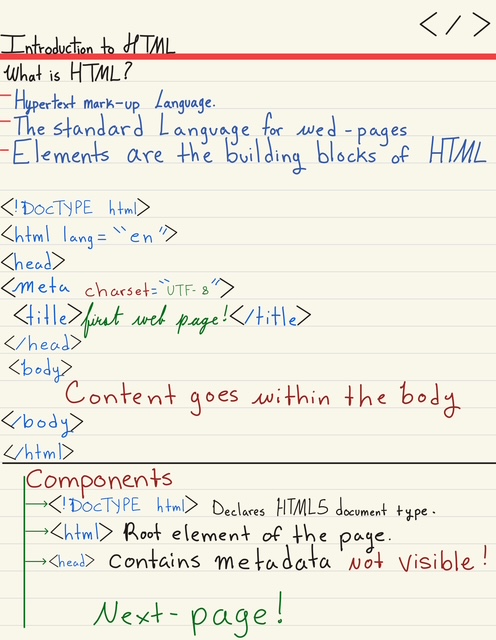 </>
Introduction to HTML
What is HTML?
- Hypertext mark-up Language.
- The standard Language for wed-pages
- Elements are the building blocks of HTML
<!DOCTYPE html>
<html lang="en">
<head>
<meta charset="UTF-8">
<title>first web page!</title>
</head>
<body>
Content goes within the body
</body>
</html>
Components
→ <!DOCTYPE html> Declares HTML5 document type.
→ <html> Root element of the page.
→ <head> contains metadata not visible!
Next-page!